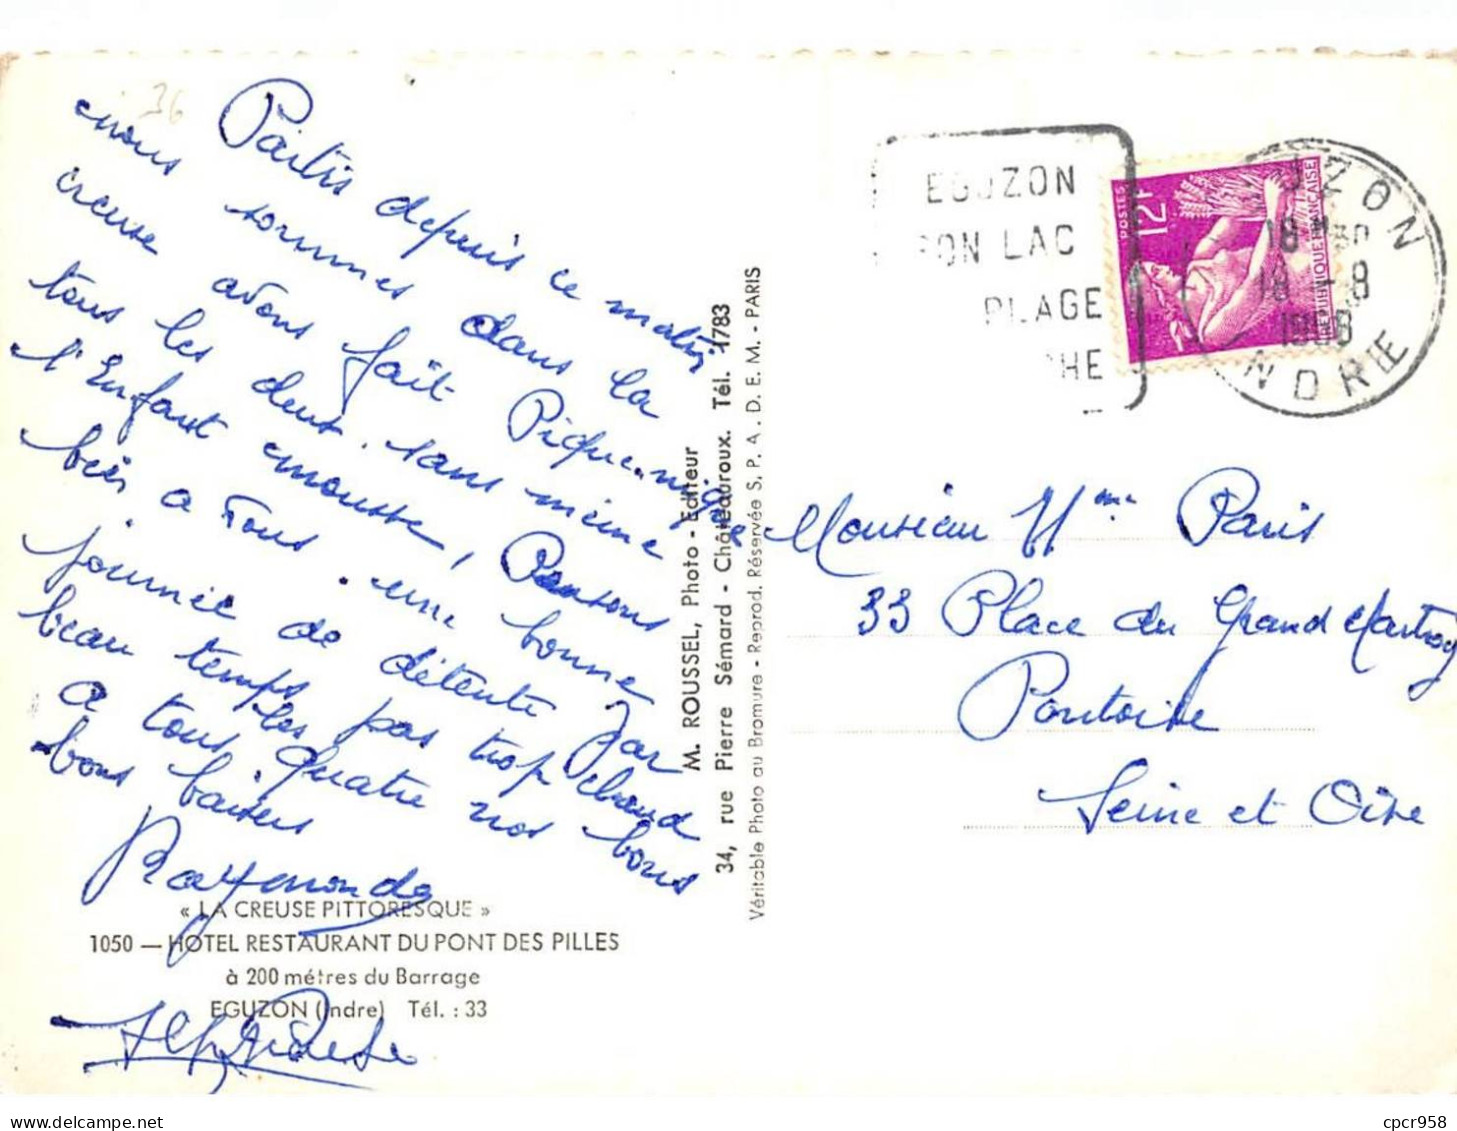 36
Partis depuis ce matin
nous sommes dans la
creuse avons fait Pique-nique
tous les deux sans même
l'Enfant mousse, Pensons
bien a vous. une bonne
journée de détente par
beau temps pas trop chaud
a tous les quatre nos bons
bons baisers
Raymonde
« LA CREUSE PITTORESQUE »
1050 — HOTEL RESTAURANT DU PONT DES PILLES
à 200 métres du Barrage
EGUZON (Indre) Tél. : 33
M. ROUSSEL, Photo - Editeur
34, rue Pierre Sémard - Châteauroux. Tél. 1783
Véritable Photo au Bromure - Reprod. Réservée S. P. A. D. E. M. - PARIS
EGUZON
SON LAC
PLAGE
HE
POSTES
12F
REPUBLIQUE FRANÇAISE
UZON
18 H 30
18 - 8
1958
INDRE
Monsieur Mme Paris
33 Place du Grand Martroy
Pontoise
Seine et Oise
cpcr958